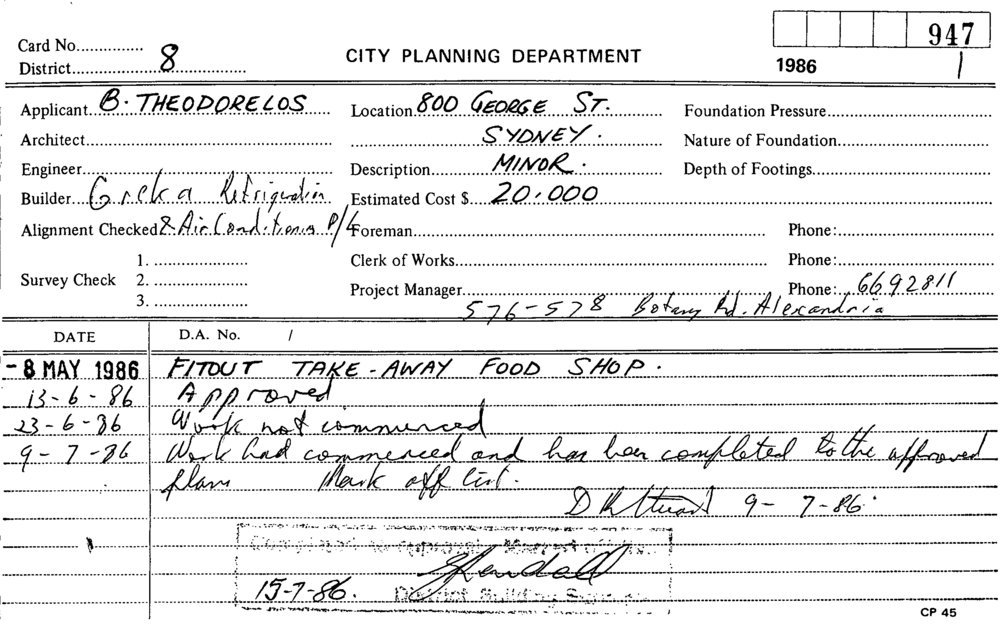 947
Card No...............
District.......8.......
CITY PLANNING DEPARTMENT
1986 1
Applicant B. THEODORELOS Location 800 GEORGE ST. Foundation Pressure
Architect SYDNEY. Nature of Foundation
Engineer Description MINOR. Depth of Footings
Builder Greka Refrigeration Estimated Cost $ 20.000
Alignment Checked & Air Conditioning P/L Foreman Phone:
Survey Check 1. Clerk of Works Phone:
2.
3. Project Manager Phone: 6692811
576-578 Botany Rd. Alexandria
DATE D.A. No. /
-8 MAY 1986 FITOUT TAKE-AWAY FOOD SHOP.
13-6-86 Approved
23-6-86 Work not commenced
9-7-86 Work had commenced and has been completed to the approved
plans Mark off list.
9-7-86.
15-7-86. District Building
CP 45